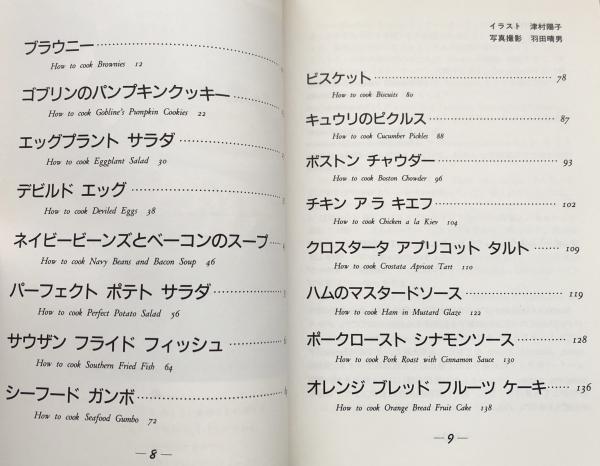 ブラウニー
How to cook Brownies 12
ゴブリンのパンプキンクッキー
How to cook Gobline's Pumpkin Cookies 22
エッグプラント サラダ
How to cook Eggplant Salad 30
デビルド エッグ
How to cook Deviled Eggs 38
ネイビービーンズとベーコンのスープ
How to cook Navy Beans and Bacon Soup 46
パーフェクト ポテト サラダ
How to cook Perfect Potato Salad 56
サウザン フライド フィッシュ
How to cook Southern Fried Fish 64
シーフード ガンボ
How to cook Seafood Gumbo 72
—8—
イラスト 津村陽子
写真撮影 羽田晴男
ビスケット 78
How to cook Biscuits 80
キュウリのピクルス 87
How to cook Cucumber Pickles 88
ボストン チャウダー 93
How to cook Boston Chowder 96
チキン ア ラ キエフ 102
How to cook Chicken a la Kiev 104
クロスタータ アプリコット タルト 109
How to cook Crostata Apricot Tart 110
ハムのマスタードソース 119
How to cook Ham in Mustard Glaze 122
ポークロースト シナモンソース 128
How to cook Pork Roast with Cinnamon Sauce 130
オレンジ ブレッド フルーツ ケーキ 136
How to cook Orange Bread Fruit Cake 138
—9—